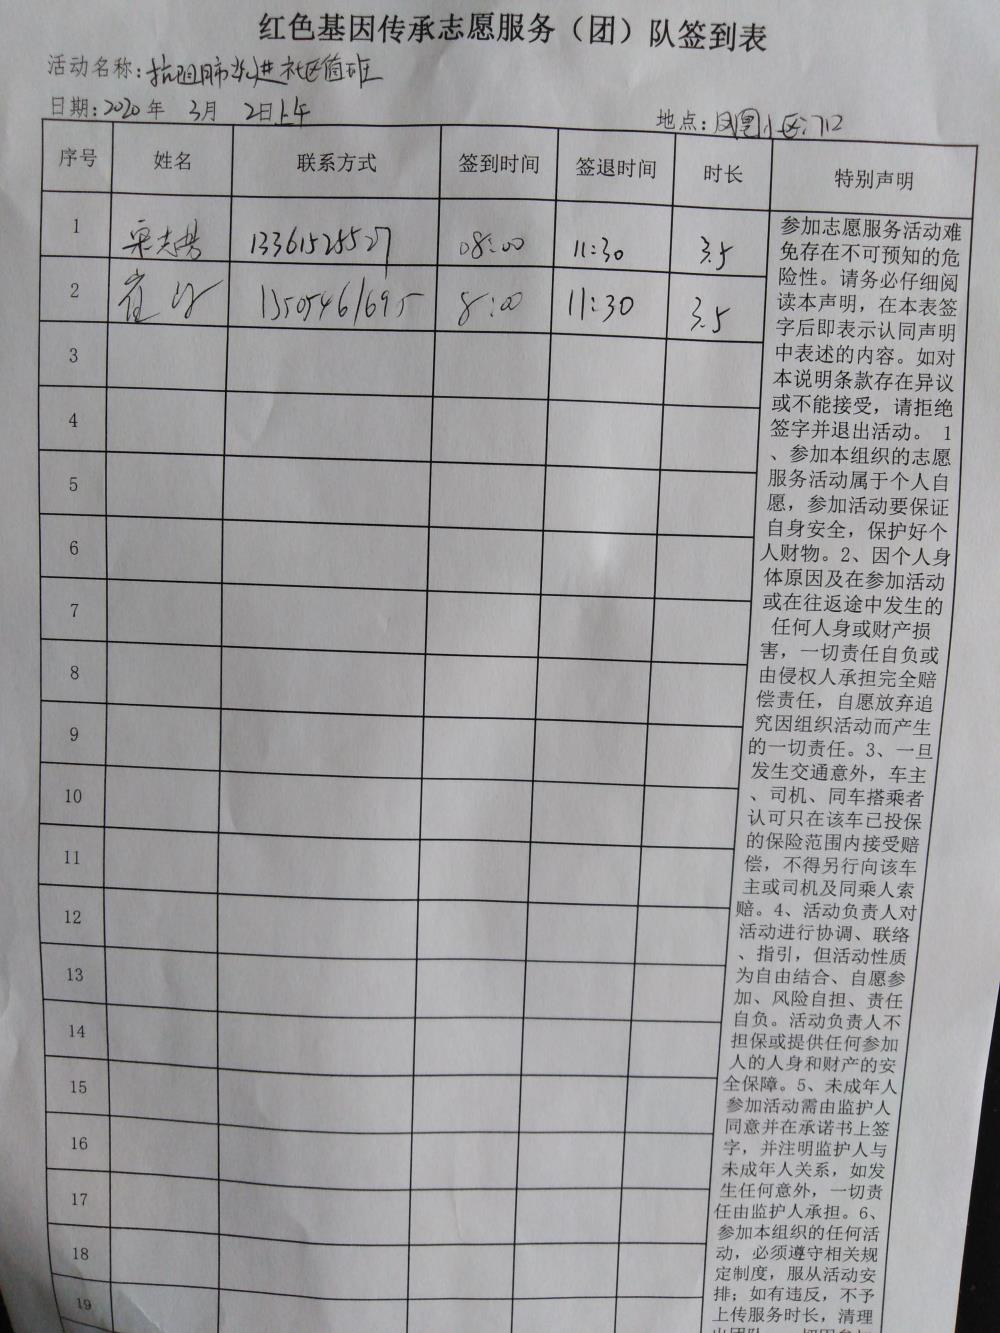 红色基因传承志愿服务（团）队签到表
活动名称：抗阻肺炎进社区值班
日期：2020年 3月 2日上午
地点：凤凰小区:712
序号 姓名 联系方式 签到时间 签退时间 时长 特别声明
1 13361525527 08:00 11:30 3.5
2 13505461695 8:00 11:30 3.5
3
4
5
6
7
8
9
10
11
12
13
14
15
16
17
18
19
参加志愿服务活动难
免存在不可预知的危
险性。请务必仔细阅
读本声明，在本表签
字后即表示认同声明
中表述的内容。如对
本说明条款存在异议
或不能接受，请拒绝
签字并退出活动。 1
、参加本组织的志愿
服务活动属于个人自
愿，参加活动要保证
自身安全，保护好个
人财物。2、因个人身
体原因及在参加活动
或在往返途中发生的
任何人身或财产损
害，一切责任自负或
由侵权人承担完全赔
偿责任，自愿放弃追
究因组织活动而产生
的一切责任。3、一旦
发生交通意外，车主
、司机、同车搭乘者
认可只在该车已投保
的保险范围内接受赔
偿，不得另行向该车
主或司机及同乘人索
赔。4、活动负责人对
活动进行协调、联络
、指引，但活动性质
为自由结合、自愿参
加、风险自担、责任
自负。活动负责人不
担保或提供任何参加
人的人身和财产的安
全保障。5、未成年人
参加活动需由监护人
同意并在承诺书上签
字，并注明监护人与
未成年人关系，如发
生任何意外，一切责
任由监护人承担。6、
参加本组织的任何活
动，必须遵守相关规
定制度，服从活动安
排；如有违反，不予
上传服务时长，清理